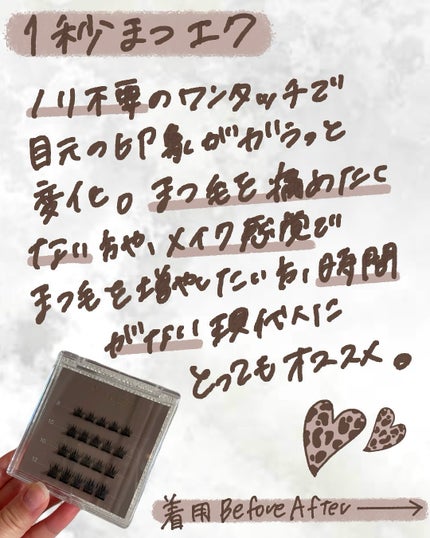 1秒まつエク
ノリ不要のワンタッチで
目元の印象がガラっと
変化。まつ毛を痛めたく
ない方や、メイク感覚で
まつ毛を増やしたい方、時間
がない現代人に
とってもオススメ。
10
12
着用 Before After